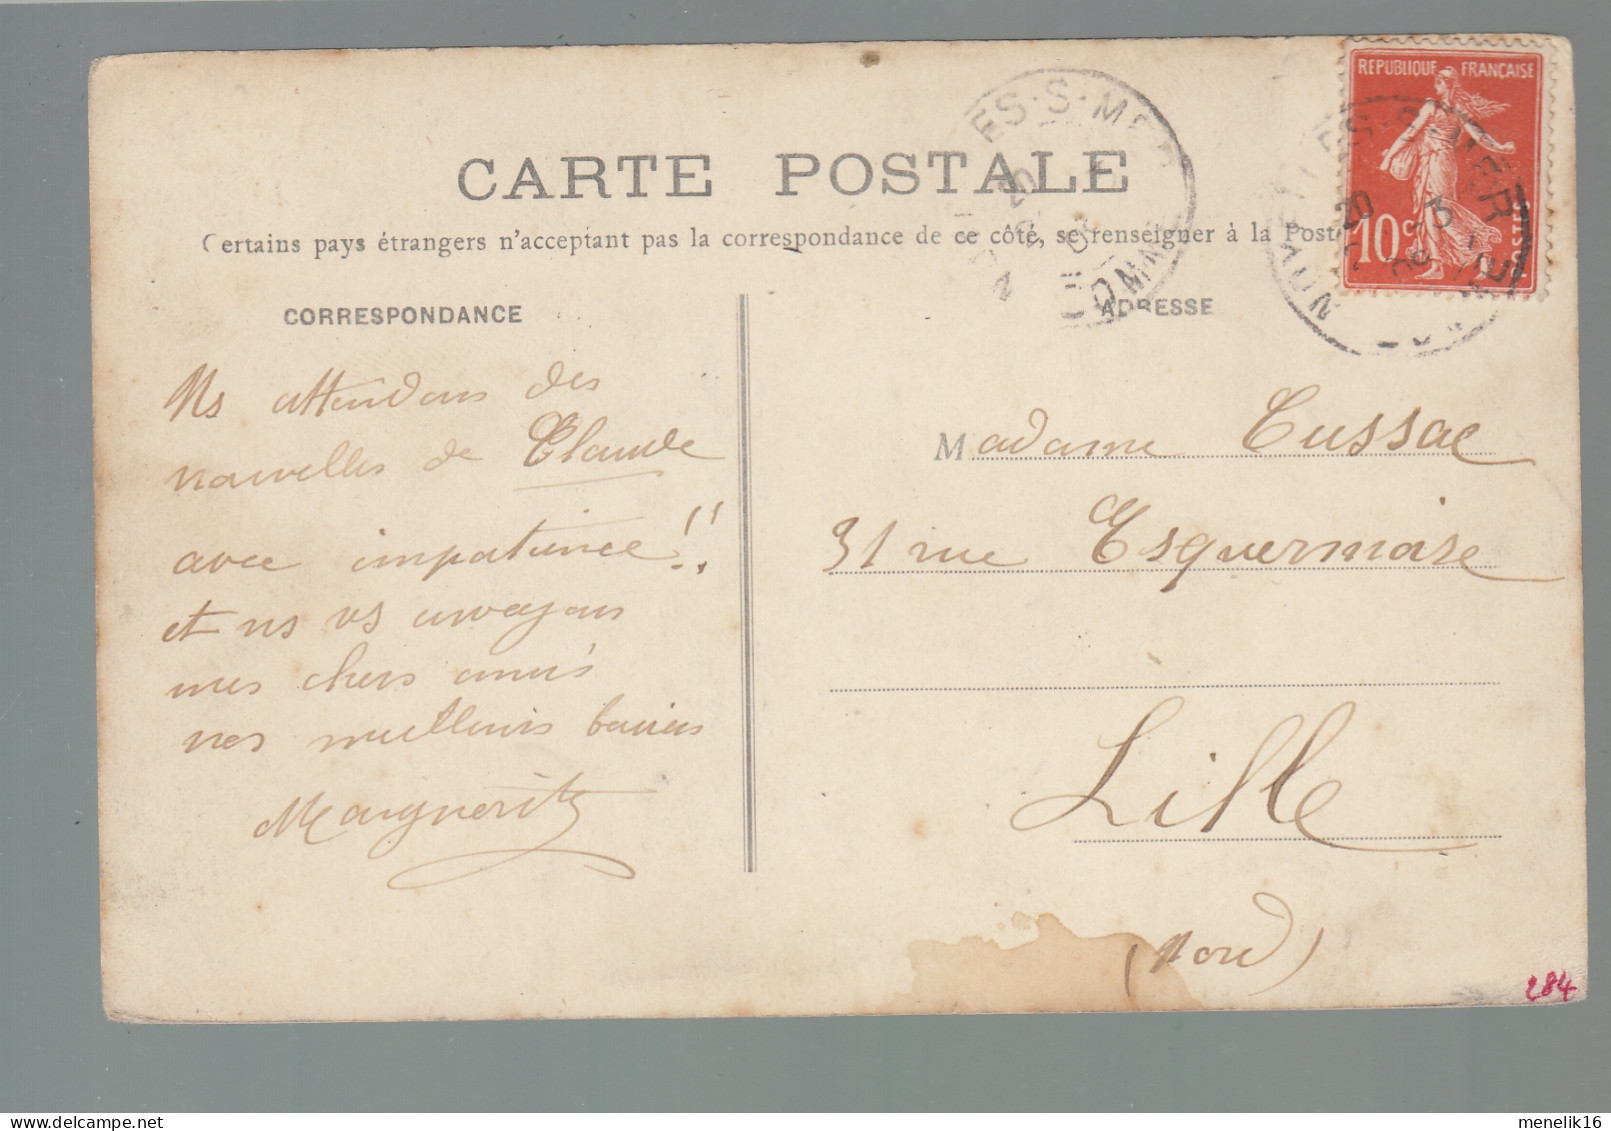 CARTE POSTALE
Certains pays étrangers n'acceptant pas la correspondance de ce côté, se renseigner à la Poste
CORRESPONDANCE
ADRESSE
REPUBLIQUE FRANÇAISE
10 c POSTES
ES-S-MER
SOMME
Ns attendons des
nouvelles de Claude
avec impatience!!
et ns vs envoyons
mes chers amis
nos meilleurs baisers
Marguerite
Madame Cussac
31 rue Esquermoise
Lille
(Nord)
284
menelik16